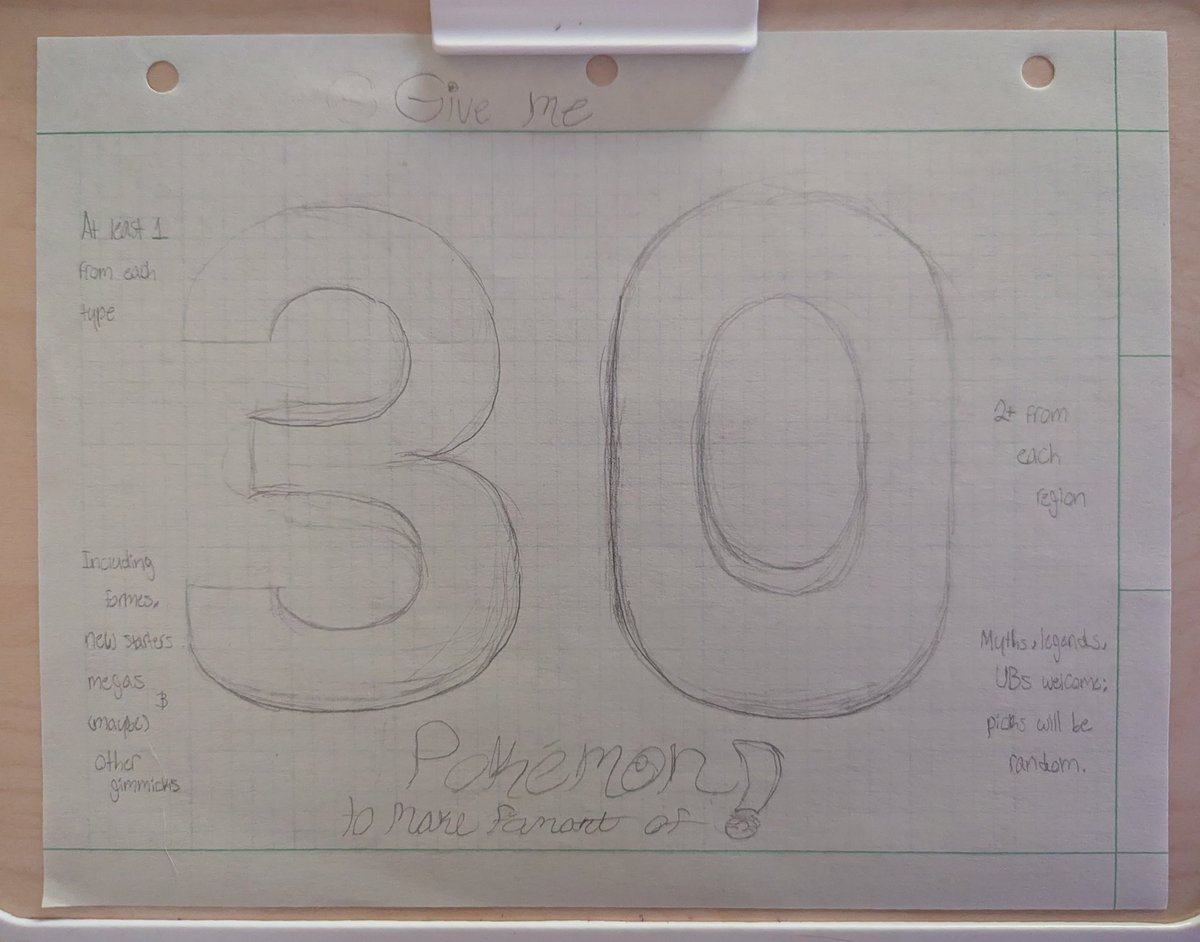 Give me
At least 1
from each
type
30
2+ from
each
region
Including
formes,
new starters
megas &
(maybe)
other
gimmicks
Myths, legends,
UBs welcome;
picks will be
random.
Pokémon
to make fanart of!